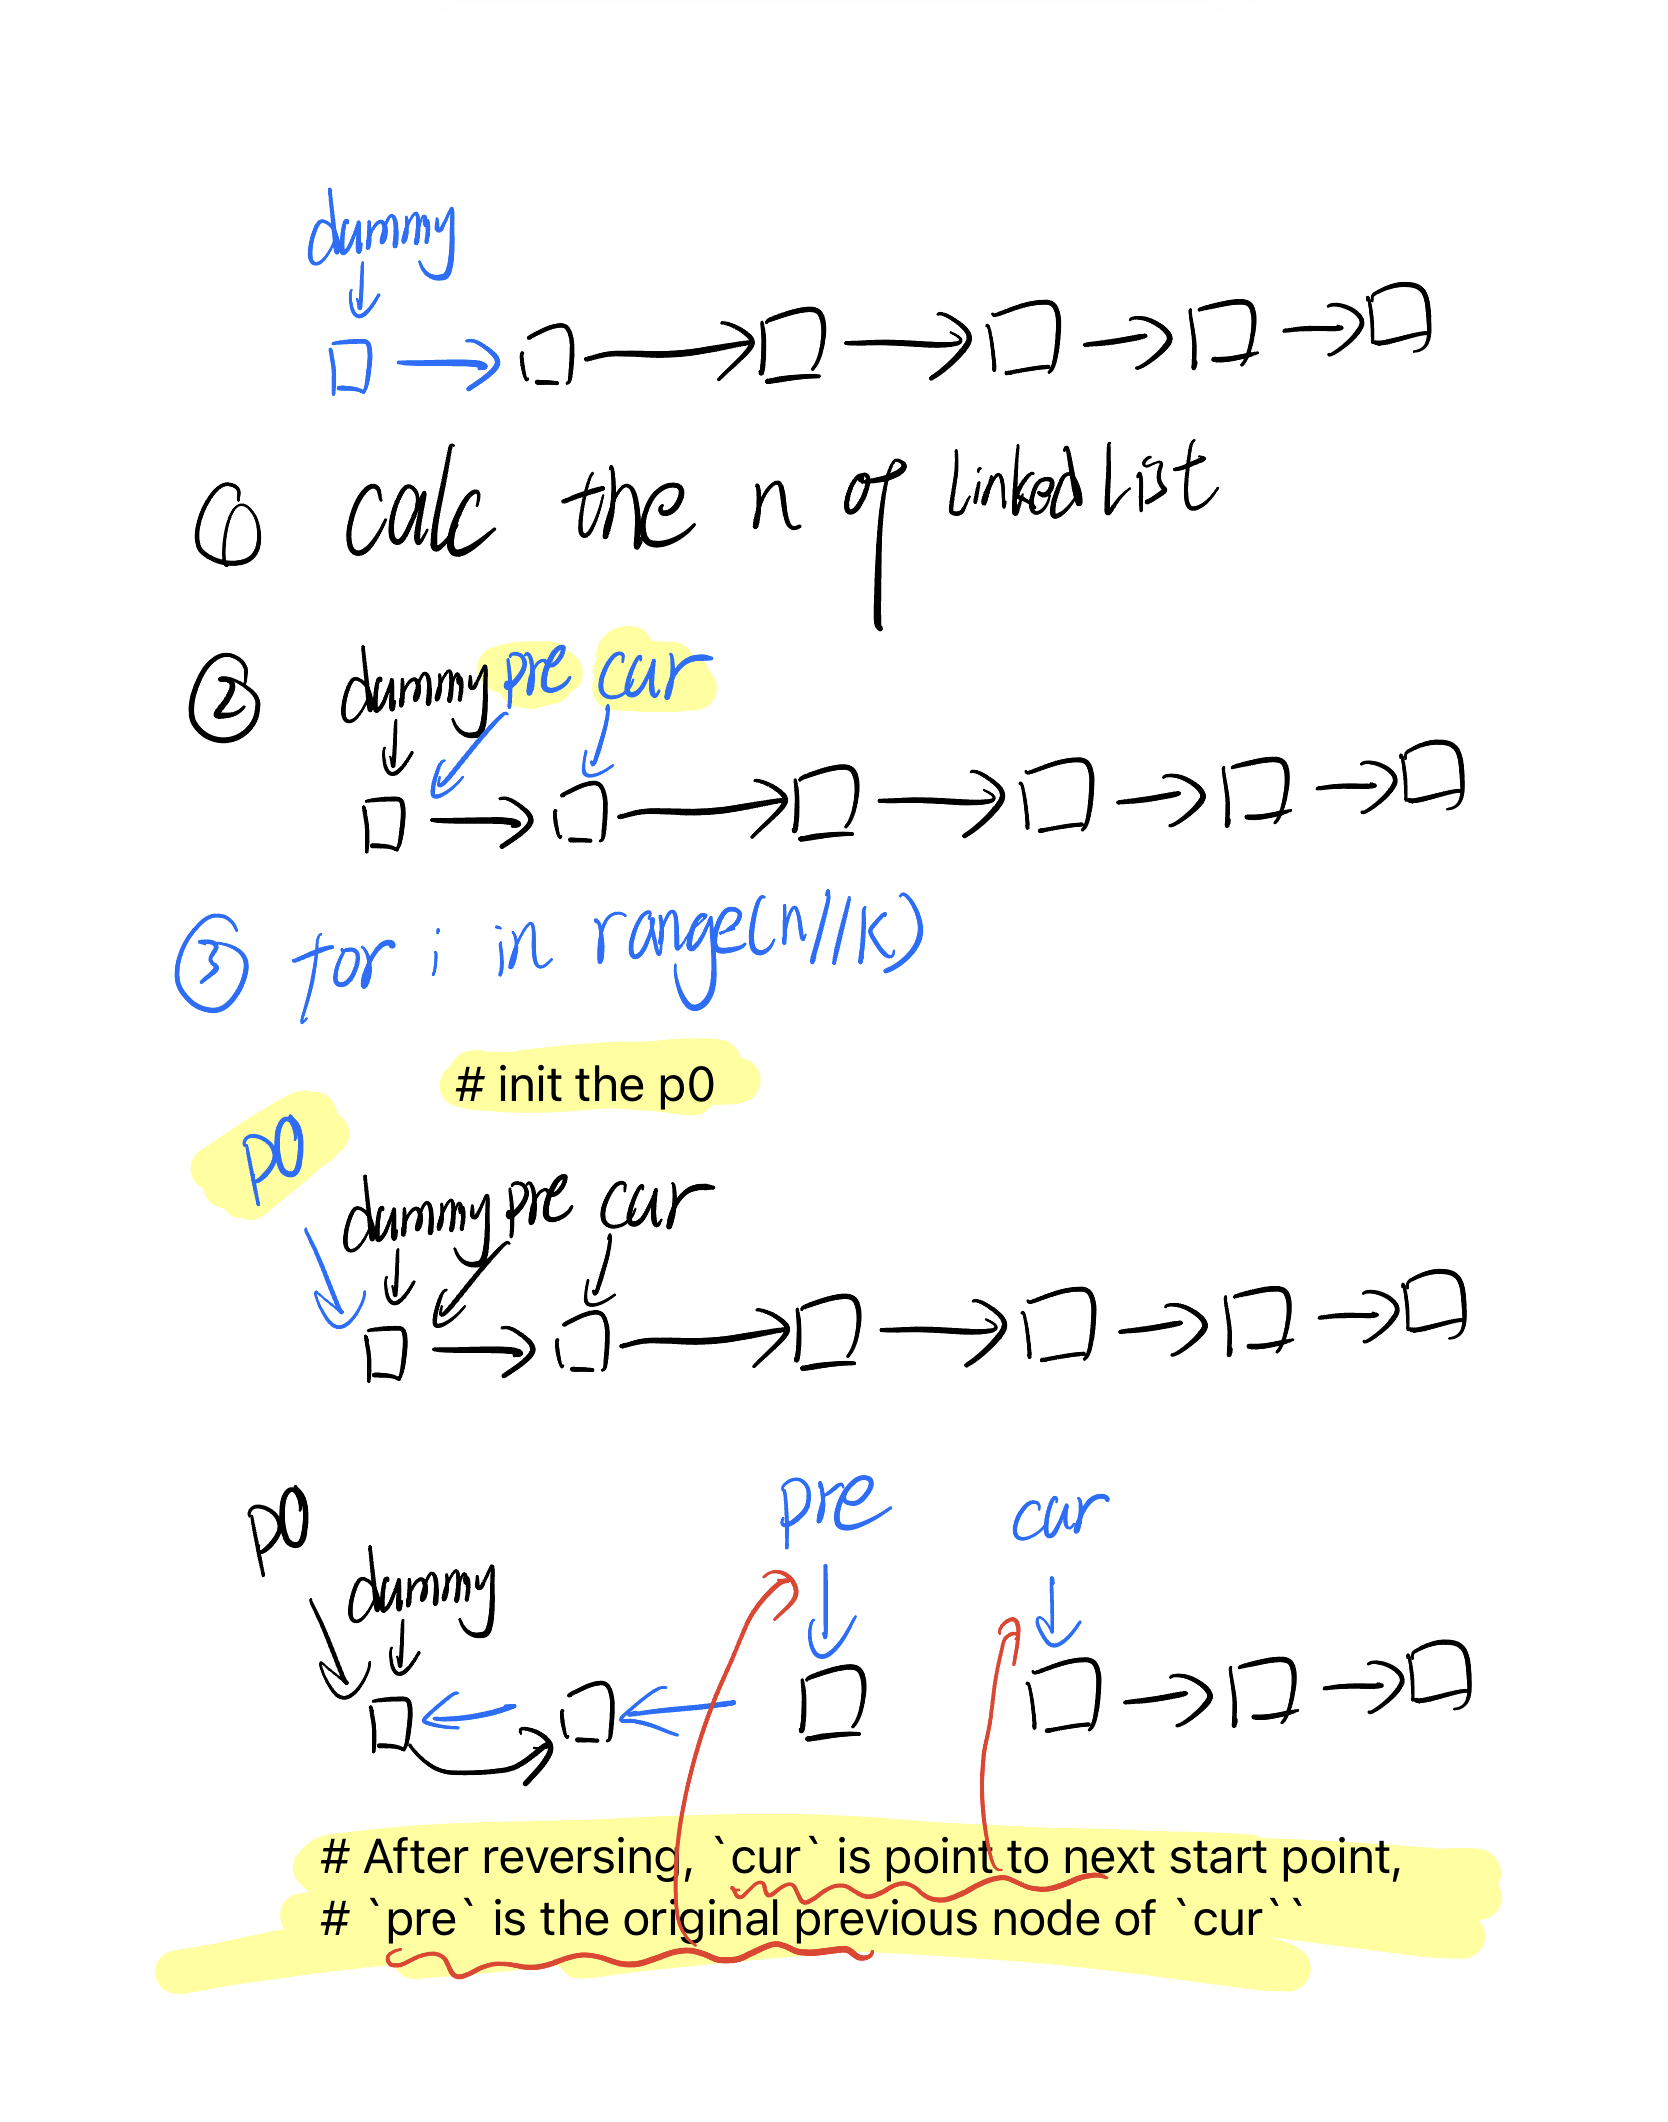 dummy
① calc the n of linked list
② dummy pre cur
③ for i in range(n//k)
# init the p0
p0
dummy pre cur
pre cur
p0
dummy
# After reversing, `cur` is point to next start point,
# `pre` is the original previous node of `cur``